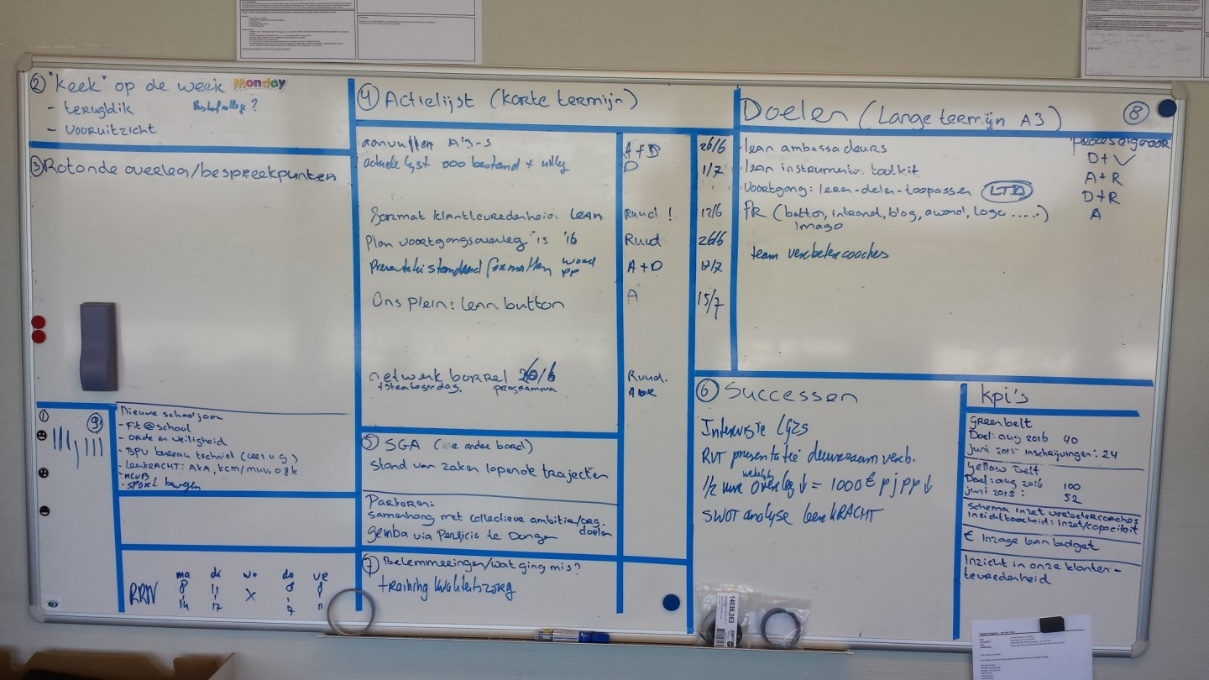 ② "Keek" op de week Monday
- terugblik
- vooruitzicht
③ Rotonde overleg/bespreekpunten
① ⑨
Nieuwe schooljaar
- Fit@school
- Orde en veiligheid
- BPV bureau techniek
- LeerKRACHT: AKA, kcm/muv,
- sport
RRW
ma di wo do vr
8 11 X 8 8
14 17 7 11
④ Actielijst (korte termijn)
aanvullen A3-s A+D 26/6
actuele lijst 000 bestand + D 1/7
format klanttevredenheid LEAN Ruud! 12/6
Plan voortgangsoverleg '15 '16 Ruud 26/6
Presentatie standaard formatten word A+D 17/7
PP
Ons plein: lean button A 15/7
netwerk borrel 26/6 Ruud.
programma
⑤ SGA (zie ander bord)
stand van zaken lopende trajecten
Parkeren:
samenhang met collectieve ambitie/org.
doelen
gemba via Perficio te Dongen
⑦ Belemmeringen/wat ging mis?
training kwaliteitszorg
Doelen (Lange termijn A3) ⑧
proceseigenaar
- lean ambassadeurs D+V
- lean instrumenten toolkit A+R
- Voortgang: leren-delen-toepassen LTD D+R
PR (button, intranet, blog, award, logo .....) A
imago
team verbetercoaches
⑥ Successen
Intervisie
RVT presentatie duurzaam verb.
1/2 uur wekelijks overleg ↓ = 1000 € p j p p ↓
SWOT analyse leerKRACHT
kpi's
Green belt
Doel: aug 2016 40
juni 2015 inschrijvingen: 24
yellow belt
Doel: aug 2016 100
juni 2015: 52
Schema inzet verbetercoaches
Inzichtbaarheid: Inzet/capaciteit
€ Inzage lean budget
Inzicht in onze klanten-
tevredenheid